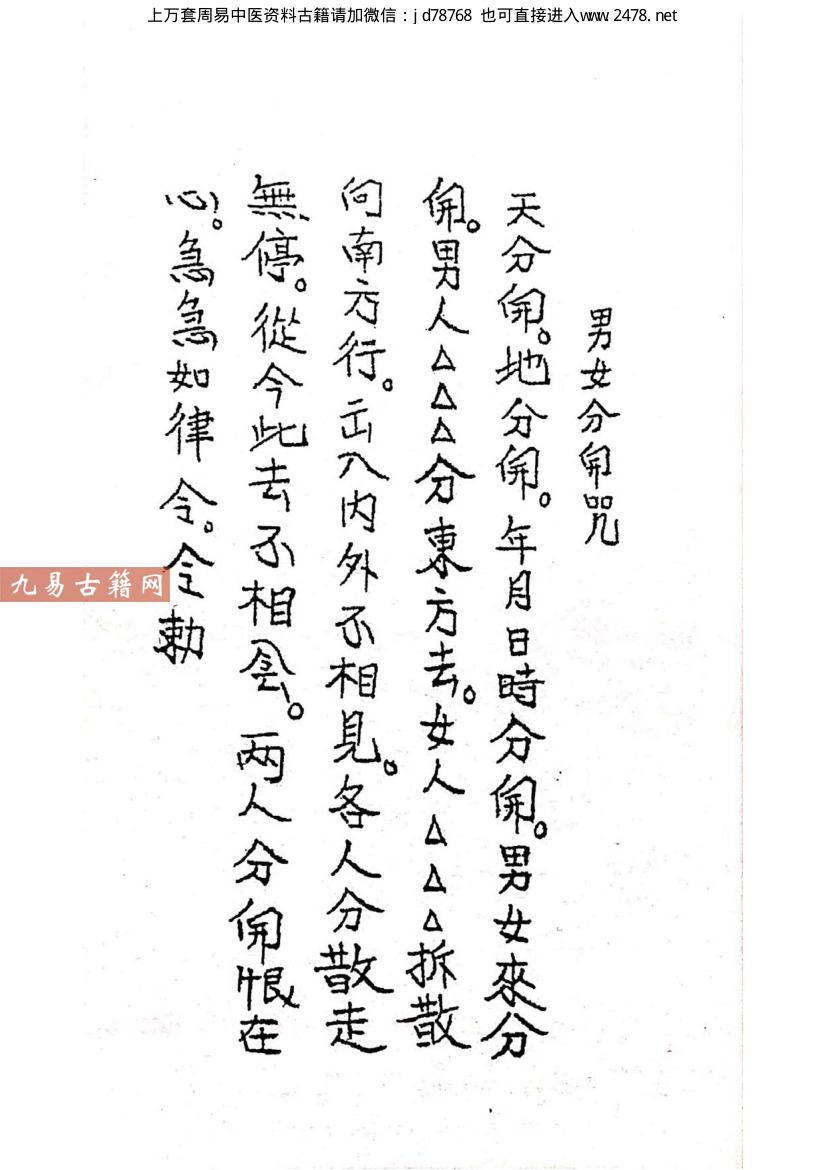 上万套周易中医资料古籍请加微信：jd78768 也可直接进入www.2478.net
男女分開咒
天分開。地分開。年月日時分開。男女來分
開。男人△△△分東方去。女人△△△拆散
向南方行。出入內外不相見。各人分散走
無停。從今此去不相會。兩人分開恨在
心。急急如律令。令勅
九易古籍网